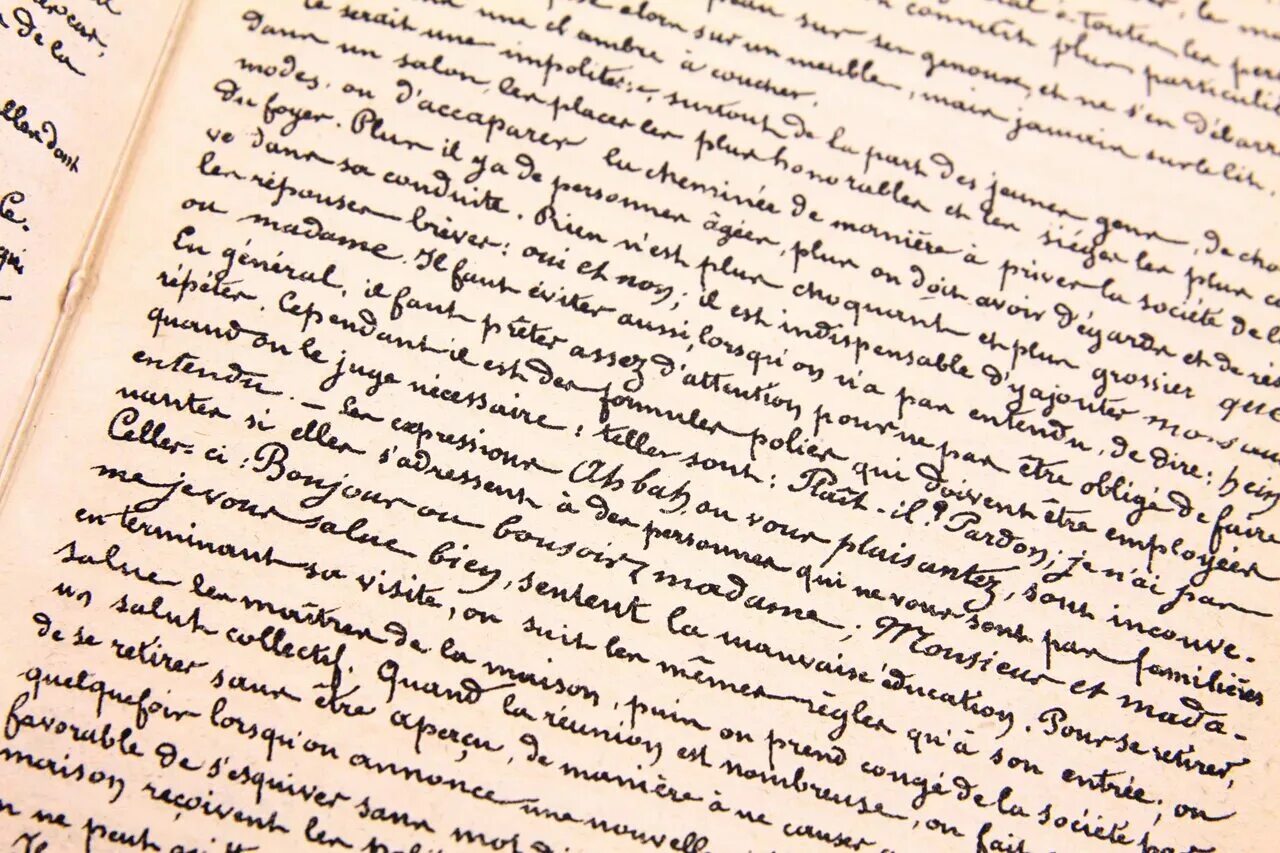 arceur,
de la
ellendant
Ce-
qui
, le me
à toutes les pers
connaît plus particuliè
peau sur ses genoux, et ne s'en débarr
pose alors sur un meuble, mais jamais sur le lit,
dans une chambre à coucher.
Ce serait une impolitesse, surtout de la part des jeunes gens, de choi
dans un salon, les places les plus honorables et les sièges les plus com
modes, ou d'accaparer la cheminée de manière à priver la société de la
du foyer. Plus il y a de personnes âgées, plus on doit avoir d'égards et de rés
ve dans sa conduite. Rien n'est plus choquant et plus grossier que
les réponses brèves: oui et non; il est indispensable d'y ajouter monsieur
ou madame. Il faut éviter aussi, lorsqu'on n'a pas entendu, de dire: hein
En général, il faut prêter assez d'attention pour ne pas être obligé de faire
répéter. Cependant il est des formules polies qui doivent être employées
quand on le juge nécessaire: telles sont: Plaît-il? Pardon; je n'ai pas
entendu. – Les expressions Ah bah, ou vous plaisantez, sont inconve-
nantes si elles s'adressent à des personnes qui ne vous sont pas familières
Celles-ci: Bonjour ou bonsoir, madame; Monsieur et mada-
me je vous salue bien, sentent la mauvaise éducation. Pour se retirer,
en terminant sa visite, on suit les mêmes règles qu'à son entrée; on
salue les maîtres de la maison, puis on prend congé de la société par
un salut collectif. Quand la réunion est nombreuse, on fait
de se retirer sans être aperçu, de manière à ne causer
quelquefois lorsqu'on annonce une nouvelle
favorable de s'esquiver sans mot di
maison reçoivent les poli
on ne peut
Il